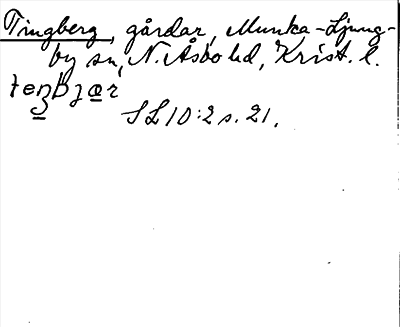 Tingberg, gårdar, Munka-Ljung-
by sn, N. Åsbo hd, Krist. l.
SL 10:2 s. 21.